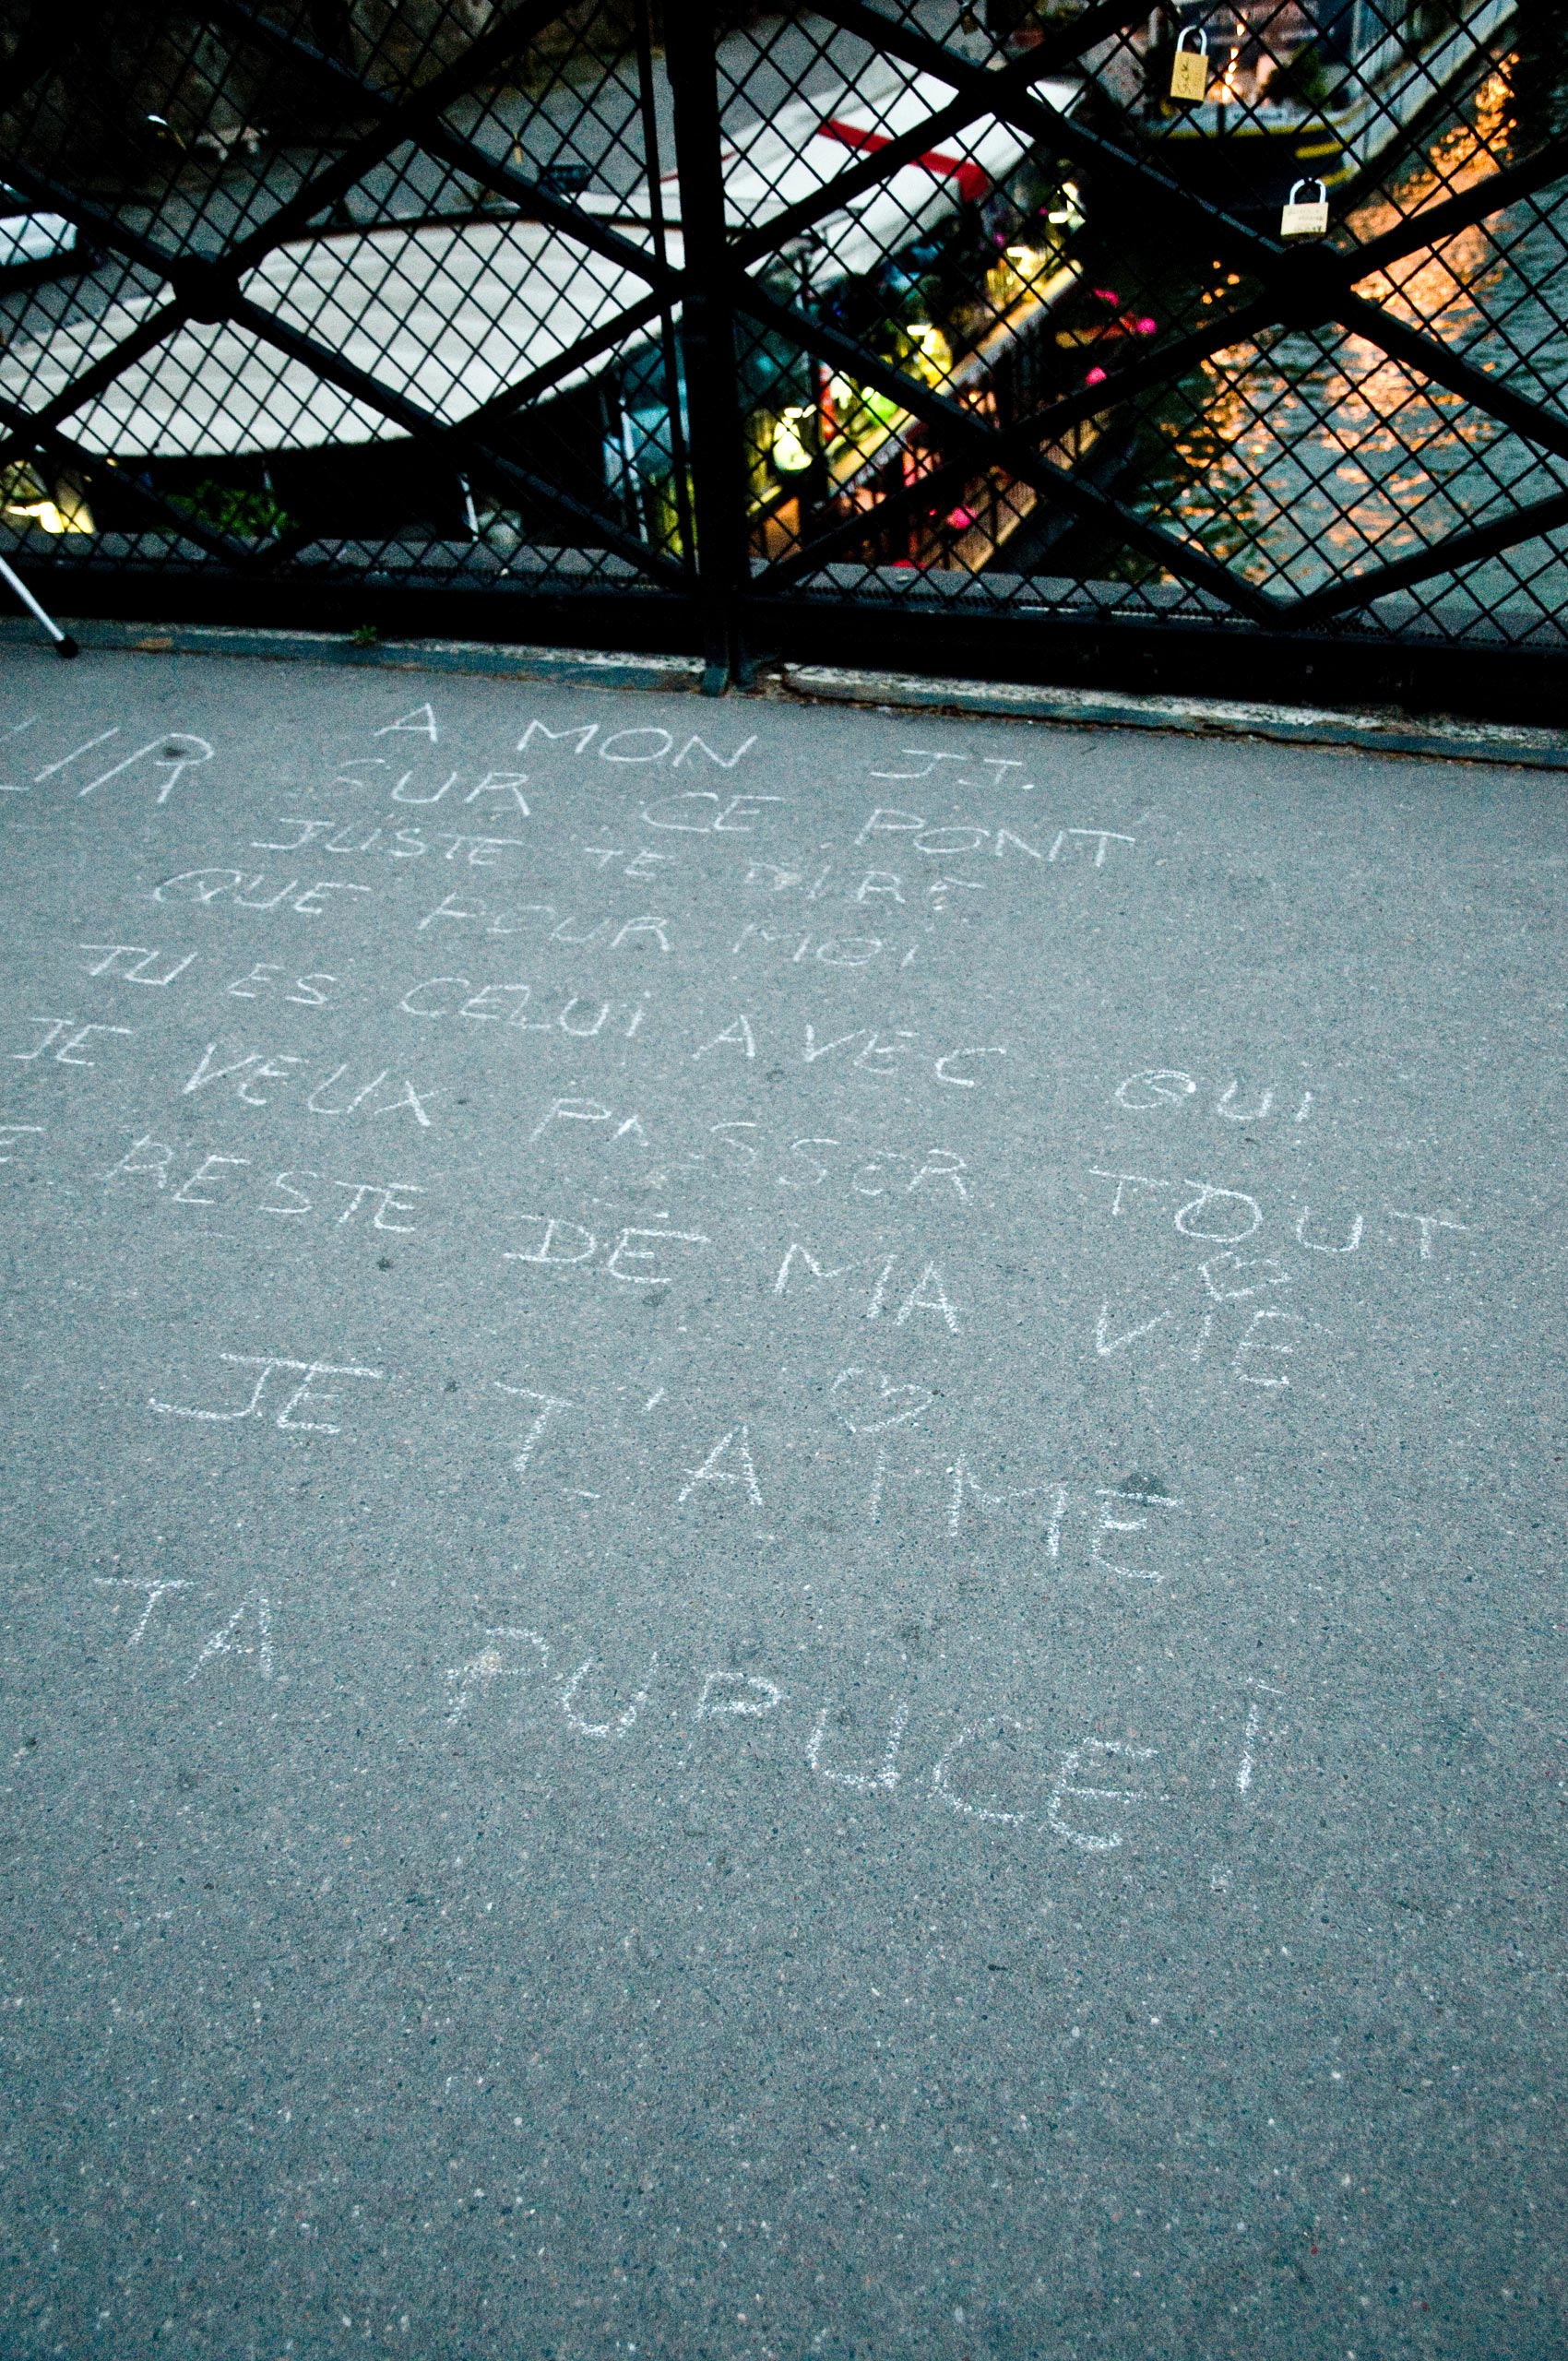 A MON JJ.
IR SUR CE PONT
JUSTE TE DIRE
QUE POUR MOi
TU ES CELUi AVEC QUi
JE VEUX PASSER TOUT
E RESTE DE MA VIE
JE T'AIME
TA PUPUCE !